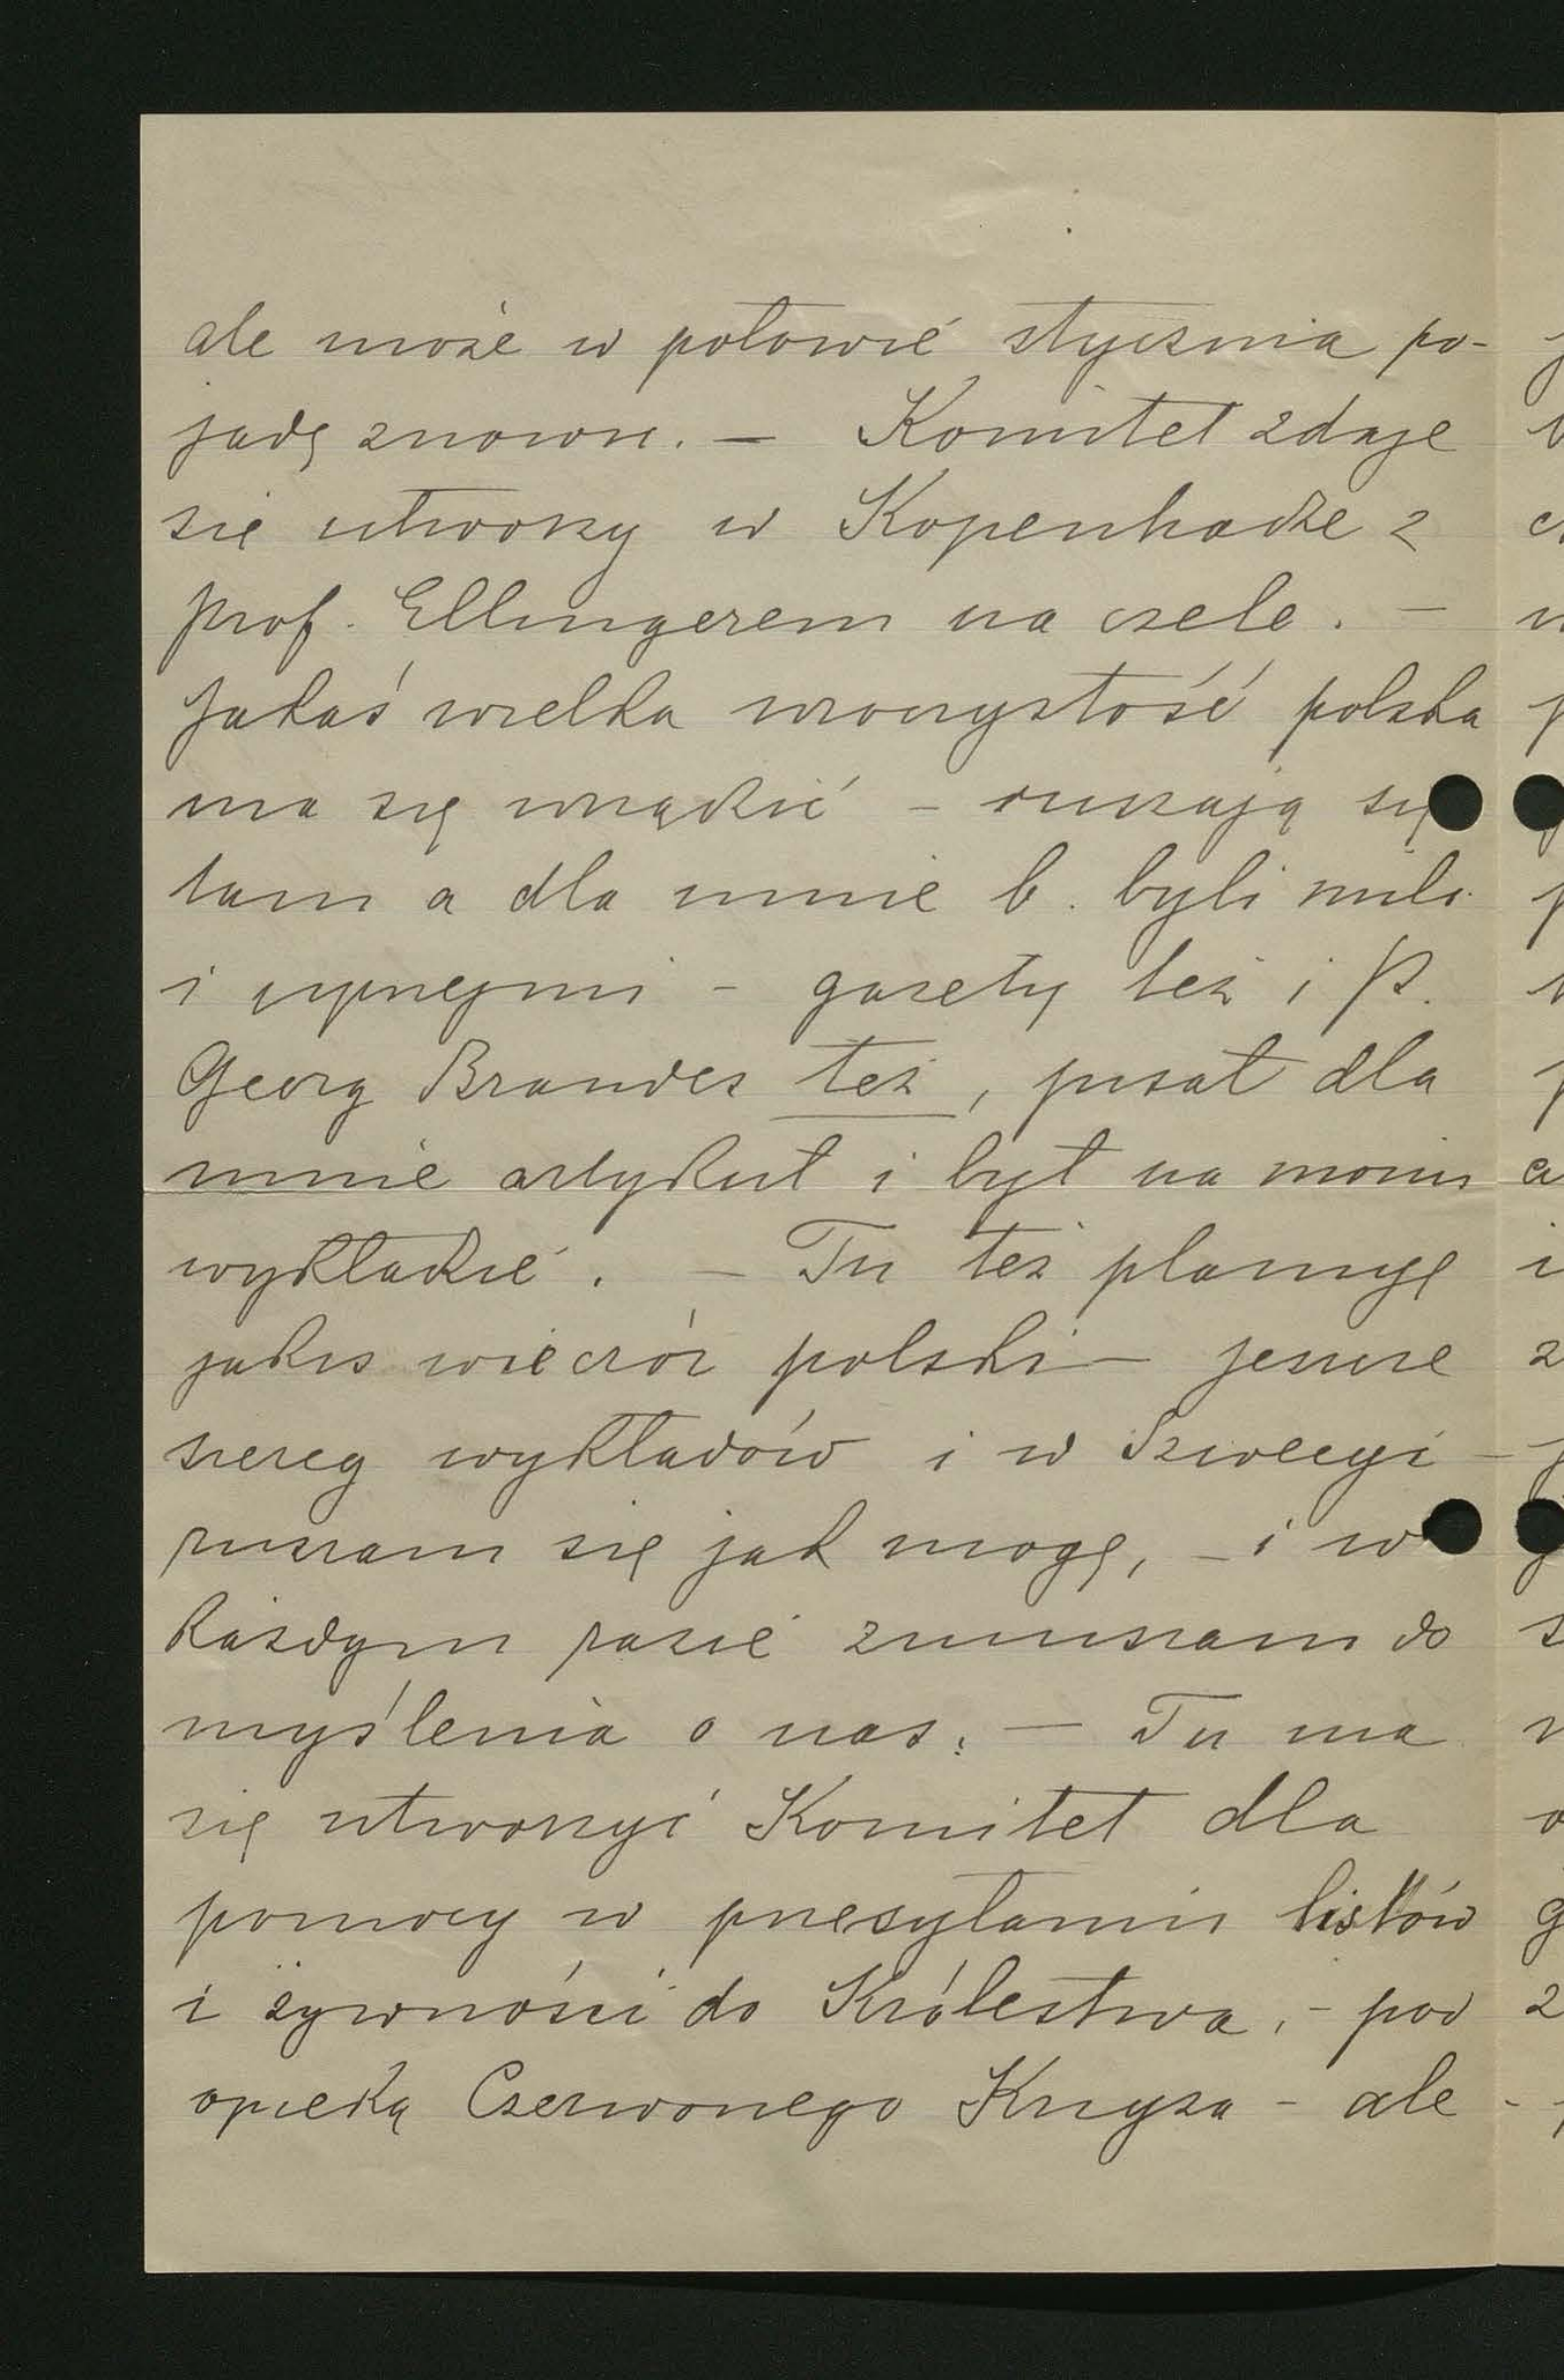 ale może w połowie stycznia po-
jadę znowu. — Komitet zdaje
się utworzy w Kopenhadze z
prof. Ellingerem na czele. —
Jakaś wielka uroczystość polska
ma się urządzić – ruszają się
tam a dla mnie b. byli mili
i uprzejmi – gazety też i P.
Georg Brandes też, pisał dla
mnie artykuł i był na moim
wykładzie. — Tu też planuję
jakiś wieczór polski — jeszcze
szereg wykładów i w Szwecyi —
ruszam się jak mogę, – i w
każdym razie zmuszam do
myślenia o nas. — Tu ma
się utworzyć Komitet dla
pomocy w przesyłaniu listów
i żywności do Królestwa, – pod
opieką Czerwonego Krzyża – ale